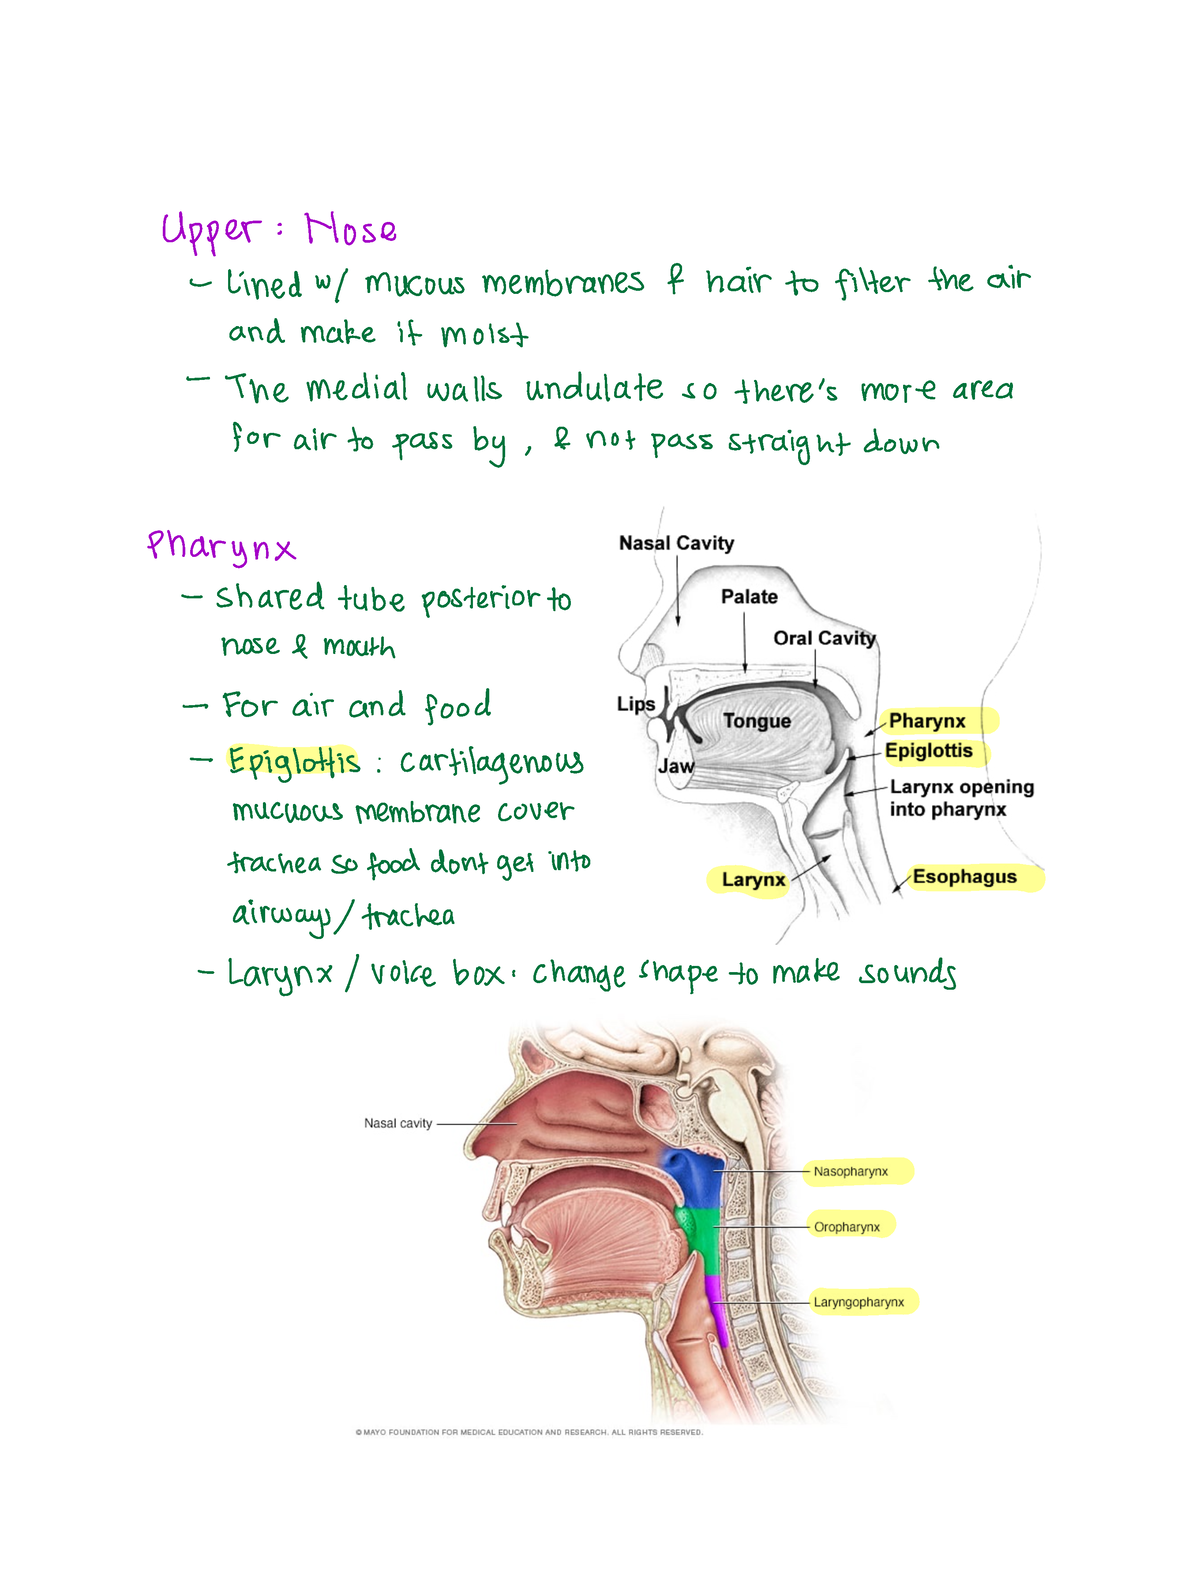 Upper : Nose
- Lined w/ mucous membranes & hair to filter the air
and make it moist
- The medial walls undulate so there's more area
for air to pass by, & not pass straight down
Pharynx
- shared tube posterior to
nose & mouth
- For air and food
- Epiglottis : cartilagenous
mucuous membrane cover
trachea so food dont get into
airways/trachea
Nasal Cavity
Palate
Oral Cavity
Lips
Tongue
Pharynx
Epiglottis
Jaw
Larynx opening
into pharynx
Larynx
Esophagus
- Larynx / voice box. change shape to make sounds
Nasal cavity
Nasopharynx
Oropharynx
Laryngopharynx
© MAYO FOUNDATION FOR MEDICAL EDUCATION AND RESEARCH. ALL RIGHTS RESERVED.